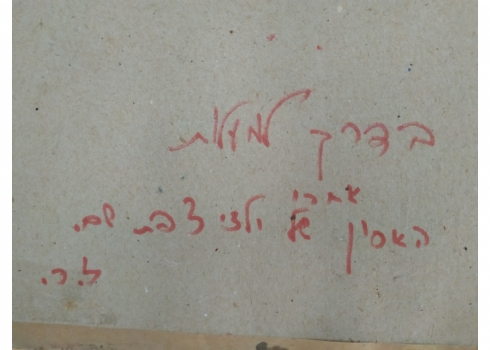 בדרך למעלות
אחרי
האסון של ילדי צפת שם.
ל.ר.